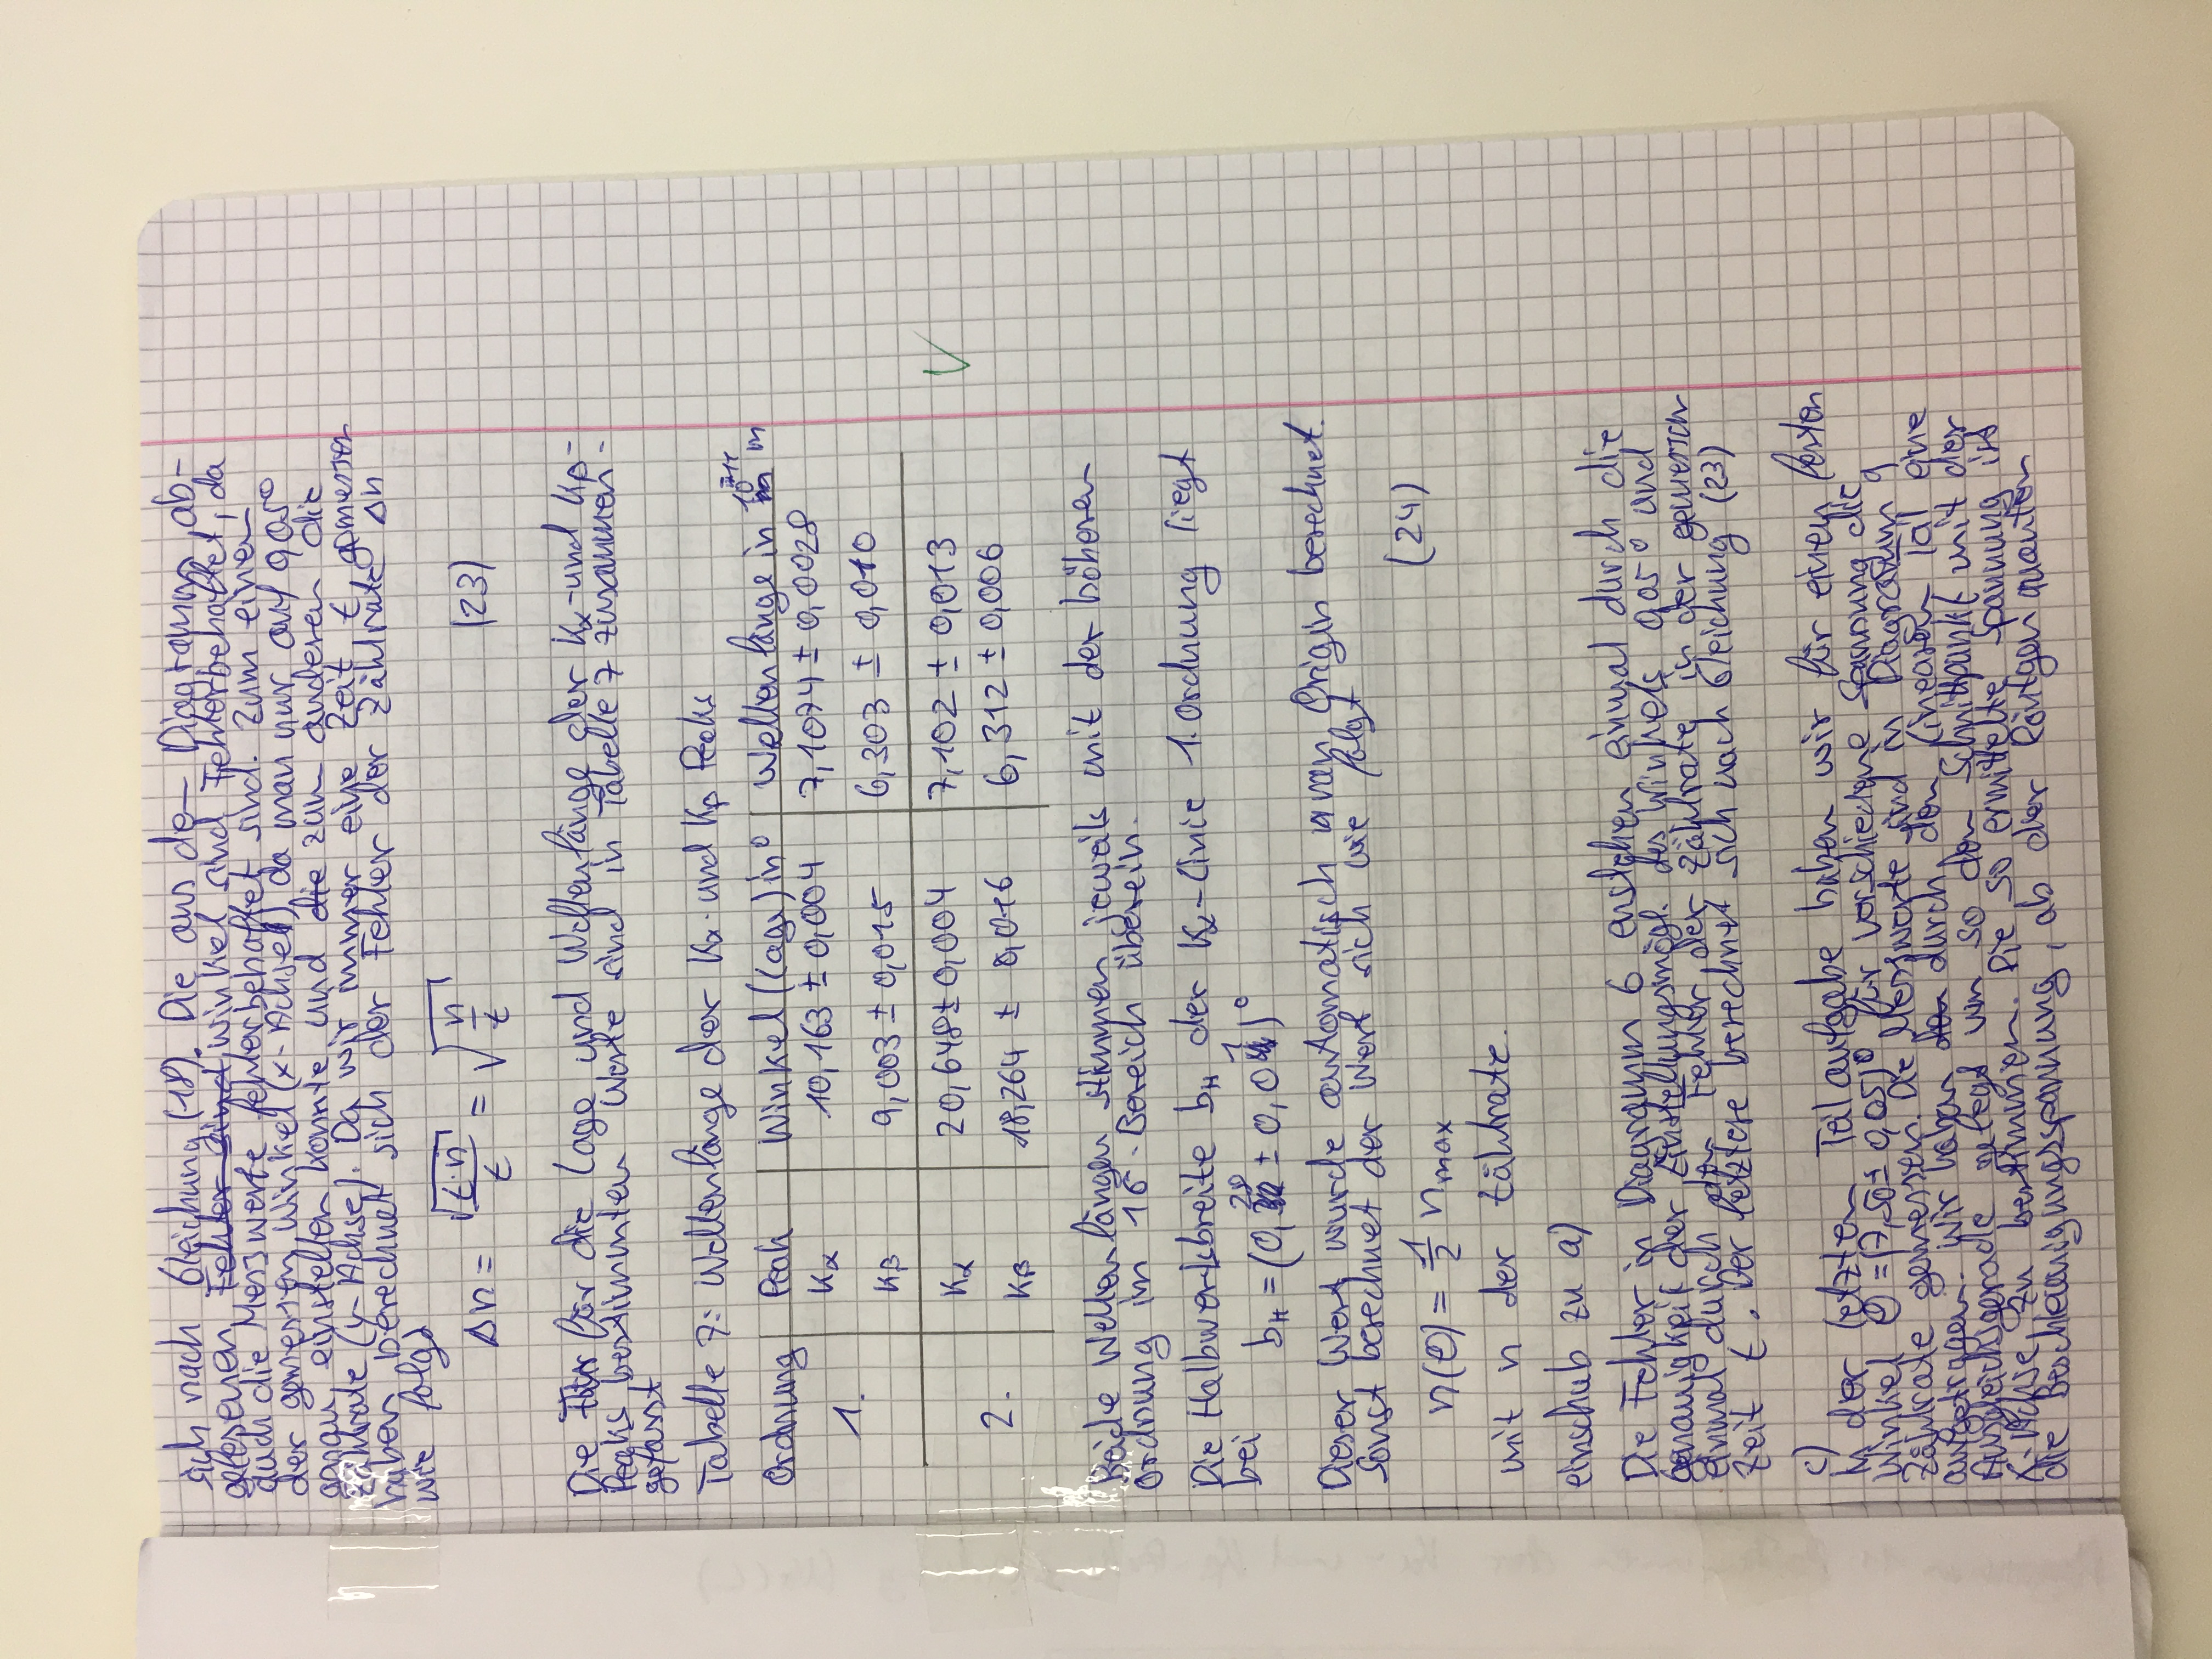 sich nach Gleichung (18). Die aus den Diagramm ab-
gelesenen Fehler sind Winkel sind Fehlerbehaftet, da
auch die Messwerte fehlerbehaftet sind. Zum einen
der gemessen Winkel (x-Achse), da man nur auf 0,05°
genau einstellen konnte und die zum anderen die
Zählrate (y-Achse). Da wir immer eine Zeit t gemessen
haben berechnet sich der Fehler der Zählrate Δn
wie folgt
Δn = √(t·n)/t = √(n/t) (23)
Die für die Lage und Wellenlänge der Kα-und Kβ-
Peaks bestimmten Werte sind in Tabelle 7 zusammen-
gefasst
Tabelle 7: Wellenlänge der Kα- und Kβ Peaks
Ordnung Peak Winkel (Lage) in ° Wellenlänge in 10⁻¹¹ m
Kα 10,163 ± 0,004 7,1074 ± 0,0028
1.
Kβ 9,003 ± 0,015 6,303 ± 0,010
Kα 20,648 ± 0,004 7,102 ± 0,013
2.
Kβ 18,264 ± 0,016 6,312 ± 0,006
Beide Wellenlängen stimmen jeweils mit der höheren
Ordnung im 1σ-Bereich überein.
Die Halbwertsbreite bH der Kα-Linie 1. Ordnung liegt
bei
bH = (0,28 ± 0,01)°
Dieser Wert wurde automatisch von Origin berechnet.
Sonst berechnet der Wert sich wie folgt
n(Θ) = 1/2 nmax (24)
mit n der Zählrate.
einschub zu a)
Die Fehler in Diagramm 6 enstehen einmal durch die
Genauigkeit der Einstellungsmögl. des Winkels 0,05° und
einmal durch den Fehler der Zählrate in der gemessen
Zeit t. Der letztere berechnet sich nach Gleichung (23)
c)
In der letzten Teilaufgabe haben wir für einen festen
Winkel Θ = (7,50 ± 0,05)° für verschiedne Spannung die
Zählrate gemessen. Die Messwerte sind in Diagramm 9
aufgetragen. Wir haben den durch den linearen Teil eine
Ausgleichsgerade gelegt um so den Schnittpunkt mit der
x-Achse zu bestimmen. Die so ermittelte Spannung ist
die Beschleunigungsspannung, ab der Röntgenquanten